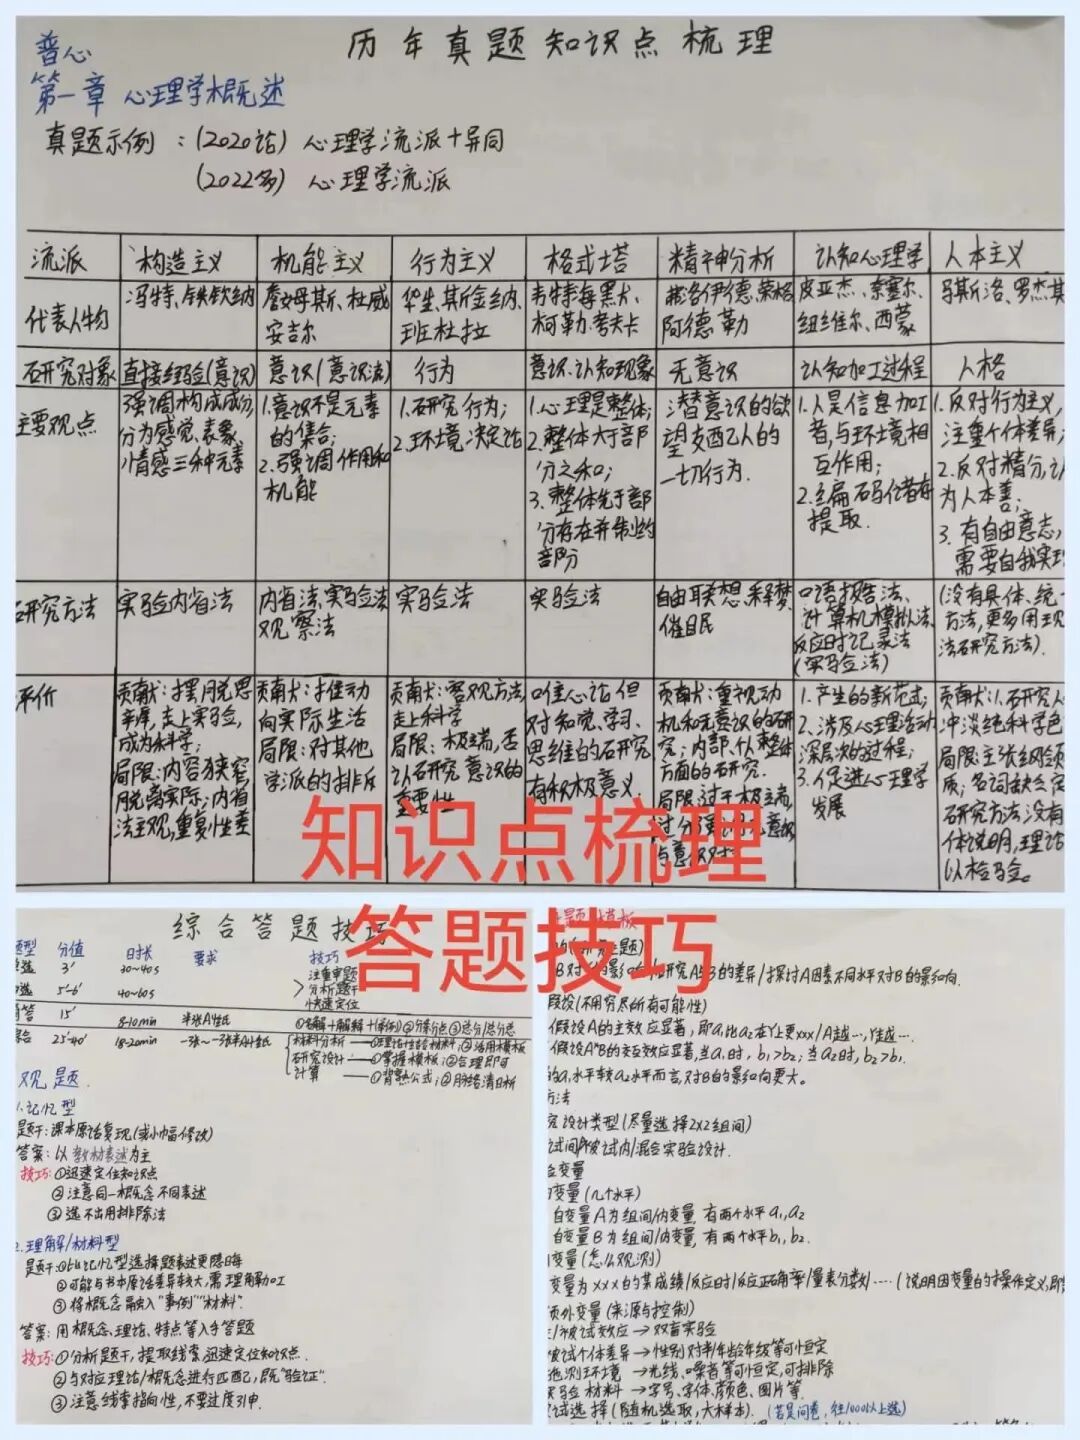 历年真题知识点梳理
普心
第一章 心理学概述
真题示例：(2020论) 心理学流派+异同
(2022多) 心理学流派
流派 构造主义 机能主义 行为主义 格式塔 精神分析 认知心理学 人本主义
代表人物
冯特、铁钦纳
詹姆斯、杜威
安吉尔
华生、斯金纳、
班杜拉
韦特海默、
柯勒、考夫卡
弗洛伊德、荣格
阿德勒
皮亚杰、奈塞尔、
纽维尔、西蒙
马斯洛、罗杰
研究对象 直接经验(意识) 意识(意识流) 行为 意识、认知现象 无意识 认知加工过程 人格
主要观点
强调构成成分,
分为感觉、表象、
情感三种元素
1.意识不是元素
的集合;
2.强调作用和
机能
1.研究行为;
2.环境决定论
1.心理是整体;
2.整体大于部
分之和;
3.整体先于部
分存在并制约
部分
潜意识的欲
望支配人的
一切行为.
1.人是信息加工
者,与环境相
互作用;
2.编码储存
提取.
1.反对行为主义,
注重个体差异;
2.反对精分,认
为人本善;
3.有自由意志,
需要自我实现
研究方法
实验内省法
内省法、实验法
观察法
实验法
实验法
自由联想、释梦、
催眠
口语报告法、
计算机模拟法、
反应时记录法
(实验法)
(没有具体、统一
方法,更多用现
法研究方法).
评价
贡献:摆脱思
辨,走上实验,
成为科学;
局限:内容狭窄,
脱离实际;内省
法主观,重复性差
贡献:推动
向实际生活
局限:对其他
学派的排斥
贡献:客观方法,
走上科学
局限:极端,否
认研究意识的
重要性
唯心论 但
对知觉、学习、
思维的研究
有积极意义.
贡献:重视动
机和无意识的研
究;内部、从整体
方面的研究.
局限:过于极端,
过分强调无意识
与意识对立
1.产生的新范式;
2.涉及心理活动
深层次的过程;
3.促进心理学
发展
贡献:1.研究人
冲淡纯科学色
局限:主张
质;名词缺乏定
研究方法没有
体说明,理论
以检验。
知识点梳理
答题技巧
综合答题技巧
题型 分值 时长 要求 技巧
单选 3' 30~40s 注重审题
多选 5'-6' 40~60s 分析题干
快速定位
简答 15' 8-10min 半张A4纸 ①名解+解释+(举例)②分条分点③总分/总分总
综合 25'-40' 18-20min 一张~一张半A4纸 材料分析——①理论结合材料;②活用模板
研究设计——①掌握模板;②合理即可
计算——①背熟公式;②脉络清晰
观题.
1.记忆型
题干:课本原话复现(或小幅修改)
答案:以教材表述为主
技巧:①迅速定位知识点
②注意同一概念不同表述
③选不出用排除法
2.理解/材料型
题干:①比记忆型选择题表述更隐晦
②可能与书本原话差异较大,需理解加工
③将概念融入"事例""材料".
答案:用概念、理论、特点等入手答题
技巧:①分析题干,提取线索,迅速定位知识点.
②与对应理论/概念进行匹配,即"验证".
③注意线索指向性,不要过度引申.
题 模板
B对 的影响/研究A与B的差异/探讨A因素不同水平对B的影响.
假设(不用穷尽所有可能性)
假设A的主效应显著,即a₁比a₂在Y上更xxx/A越…,Y越….
假设A*B的交互效应显著,当a₁时,b₁>b₂;当a₂时,b₂>b₁.
的a₁水平较a₂水平而言,对B的影响更大。
方法
究设计类型(尽量选择2x2组间)
试间/被试内/混合实验设计.
变量
变量(几个水平)
自变量A为组间/内变量,有两个水平a₁,a₂
自变量B为组间/内变量,有两个水平b₁,b₂.
变量(怎么观测)
变量为xxx的某成绩/反应时/反应正确率/量表分数/……(说明因变量的操作定义,即
额外变量(来源与控制)
/被试效应→双盲实验
被试个体差异→性别对半/年龄年级等可恒定
施测环境→光线、噪音等可恒定,可排除
实验材料→字号、字体、颜色、图片等.
试选择(随机选取,大样本).(若是问卷,往1000以上选)